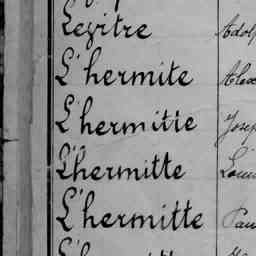 Legitre Adol
L'hermite Alex
L'hermitte Josep
L'hermitte Loui
L'hermitte Pau